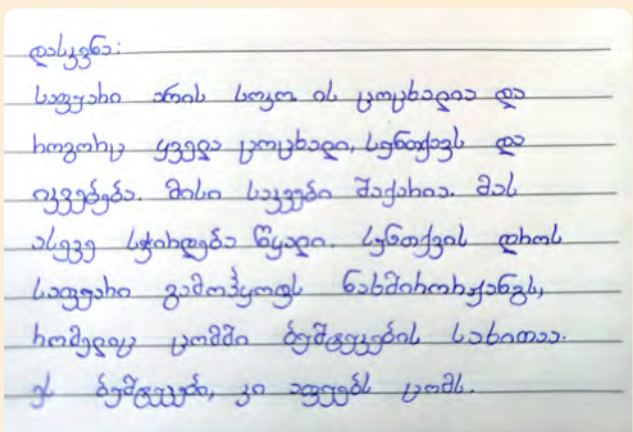 დასკვნა:
საფუარი არის სოკო. ის ცოცხალია და
როგორც ყველა ცოცხალი, სუნთქავს და
იკვებება. მისი საკვები შაქარია. მას
ასევე სჭირდება წყალი. სუნთქვის დროს
საფუარი გამოჰყოფს ნახშირორჟანგს,
რომელიც ცომში ბუშტუკების სახითაა.
ეს ბუშტუკები, კი აფუებს ცომს.